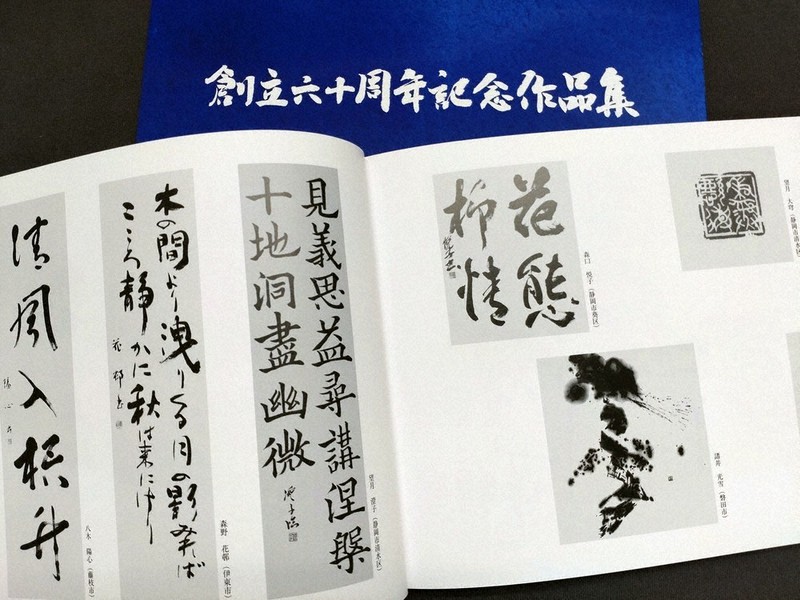 創立六十周年記念作品集
望月
(静岡市清水区)
花態
柳情
森口 悦子 (静岡市葵区)
諸井 光雪 (磐田市)
見義思益尋講涅槃
十地洞盡幽微
望月 澄子 (静岡市清水区)
木の間より洩りくる月の影見れば
こころ静かに秋は来にけり
森野 (伊東市)
清風入
八木 陽心 (藤枝市)